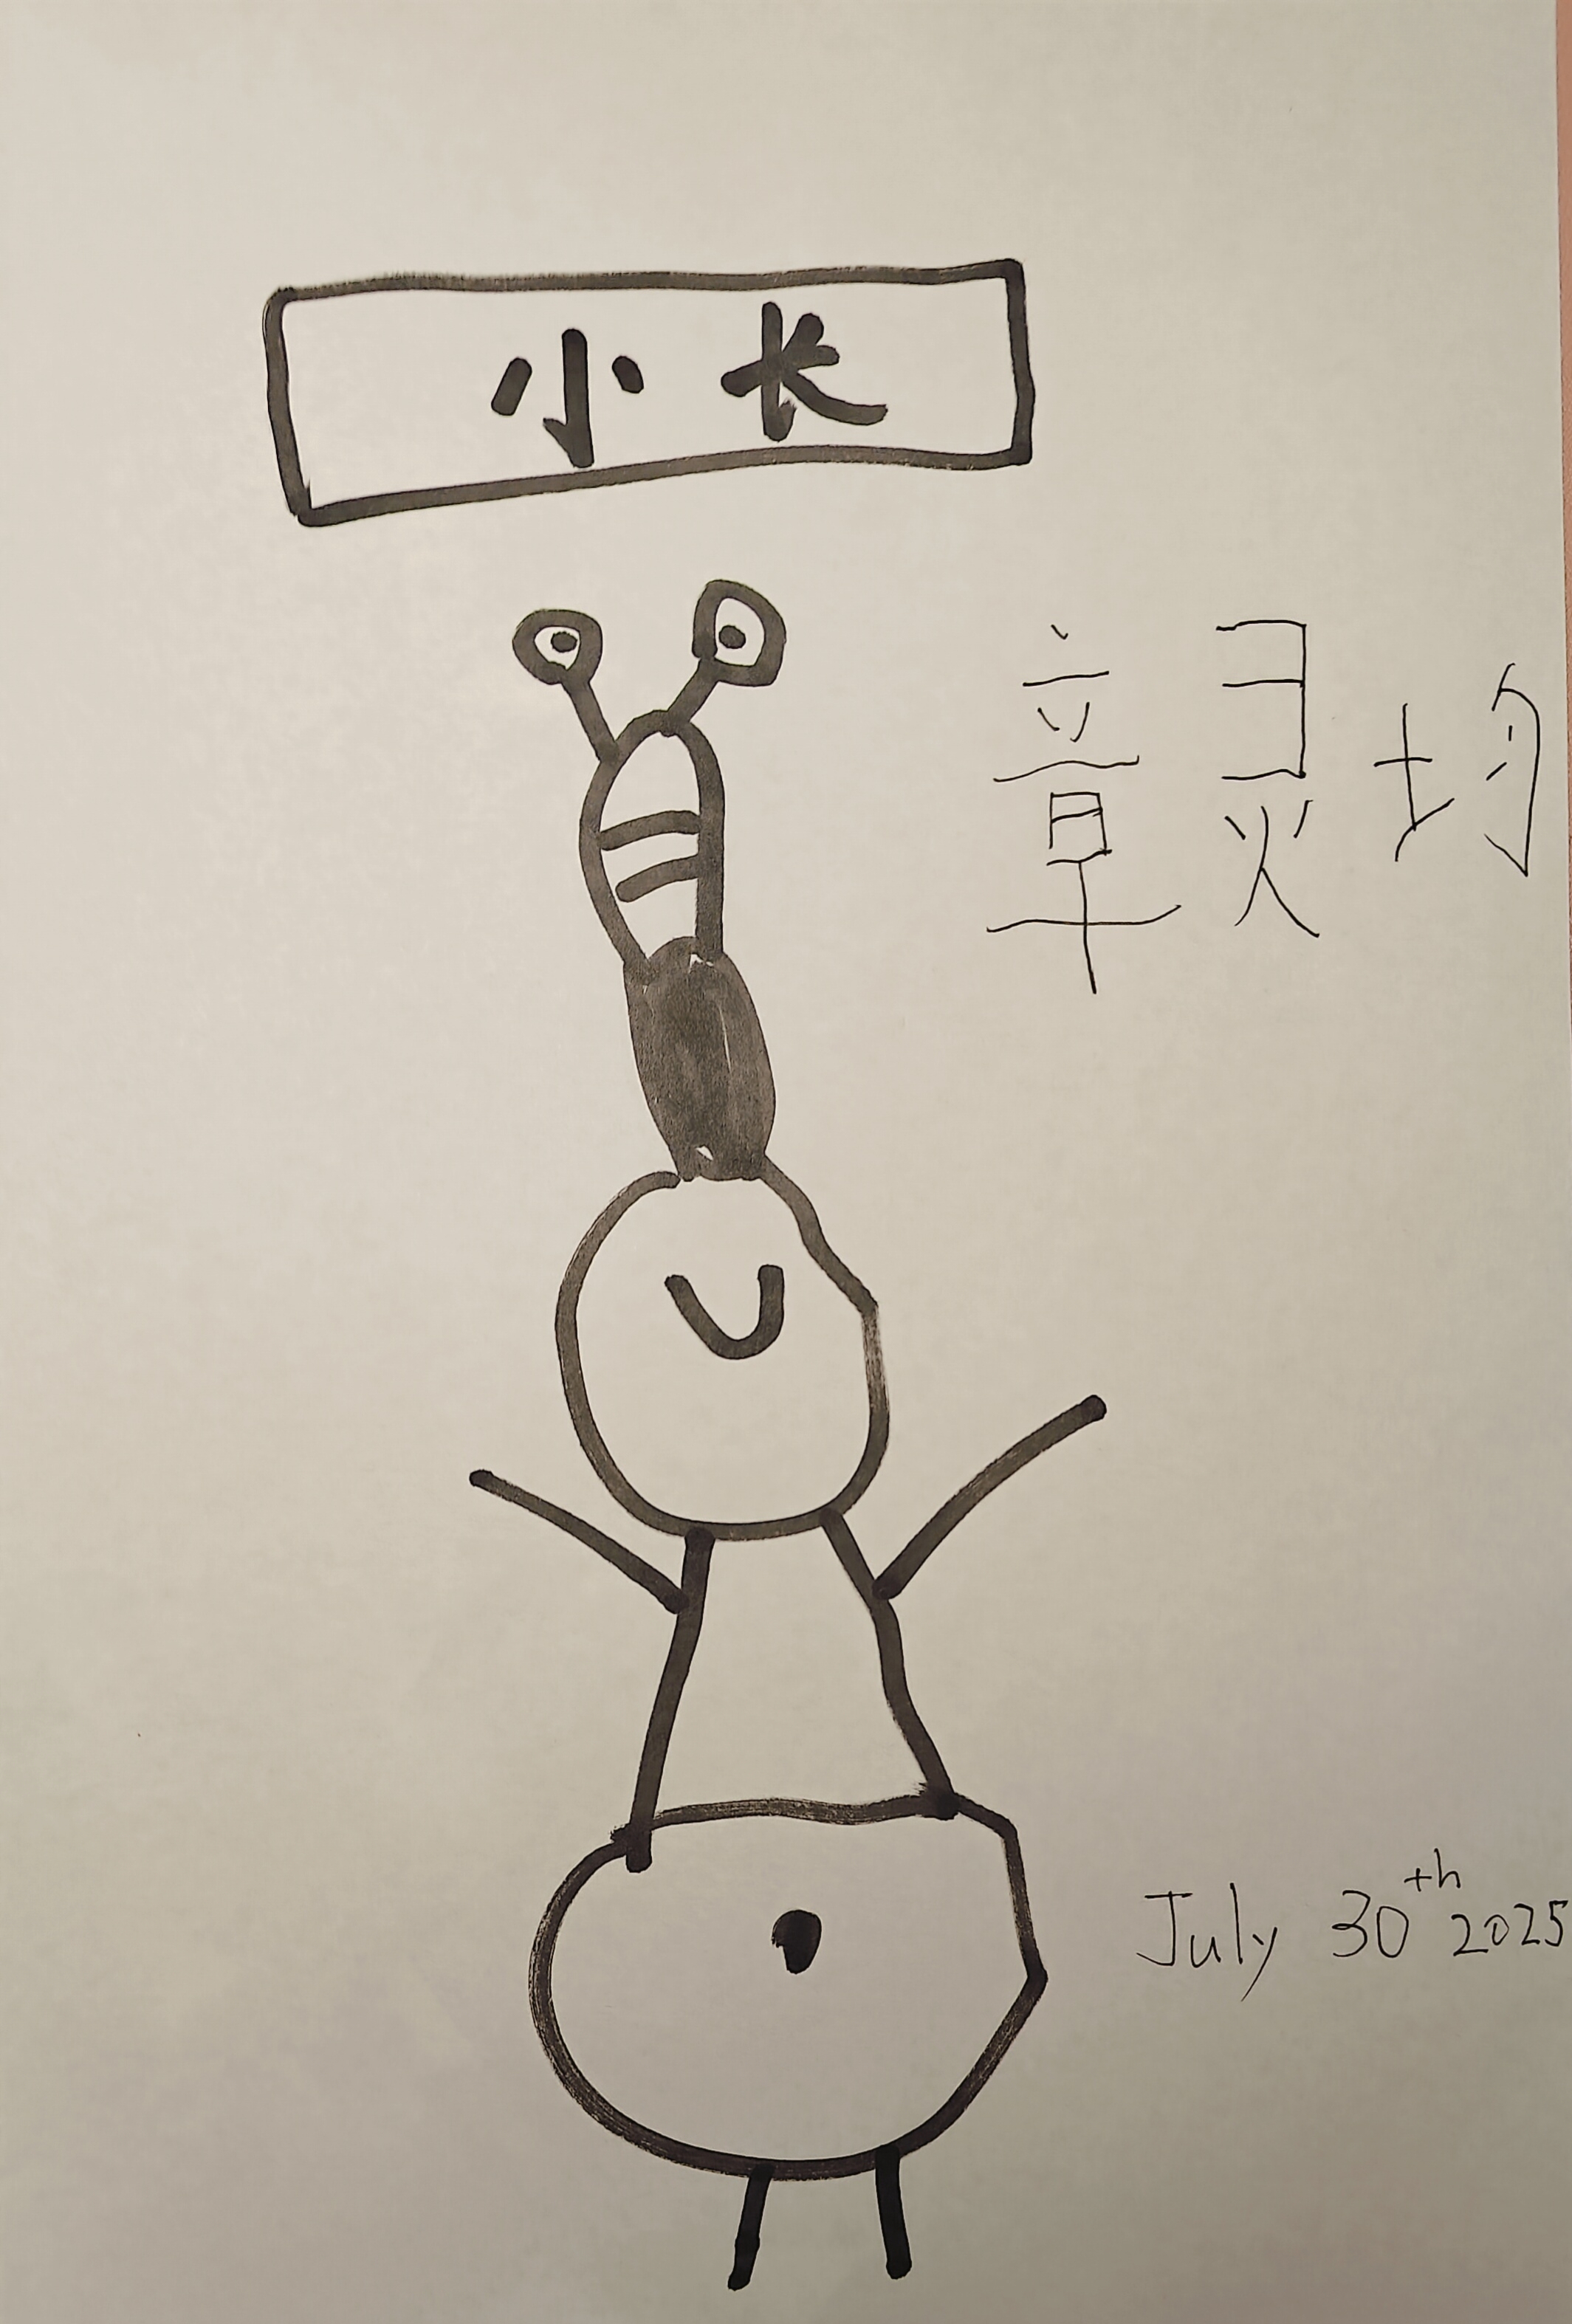 小长
章灵均
July 30th 2025